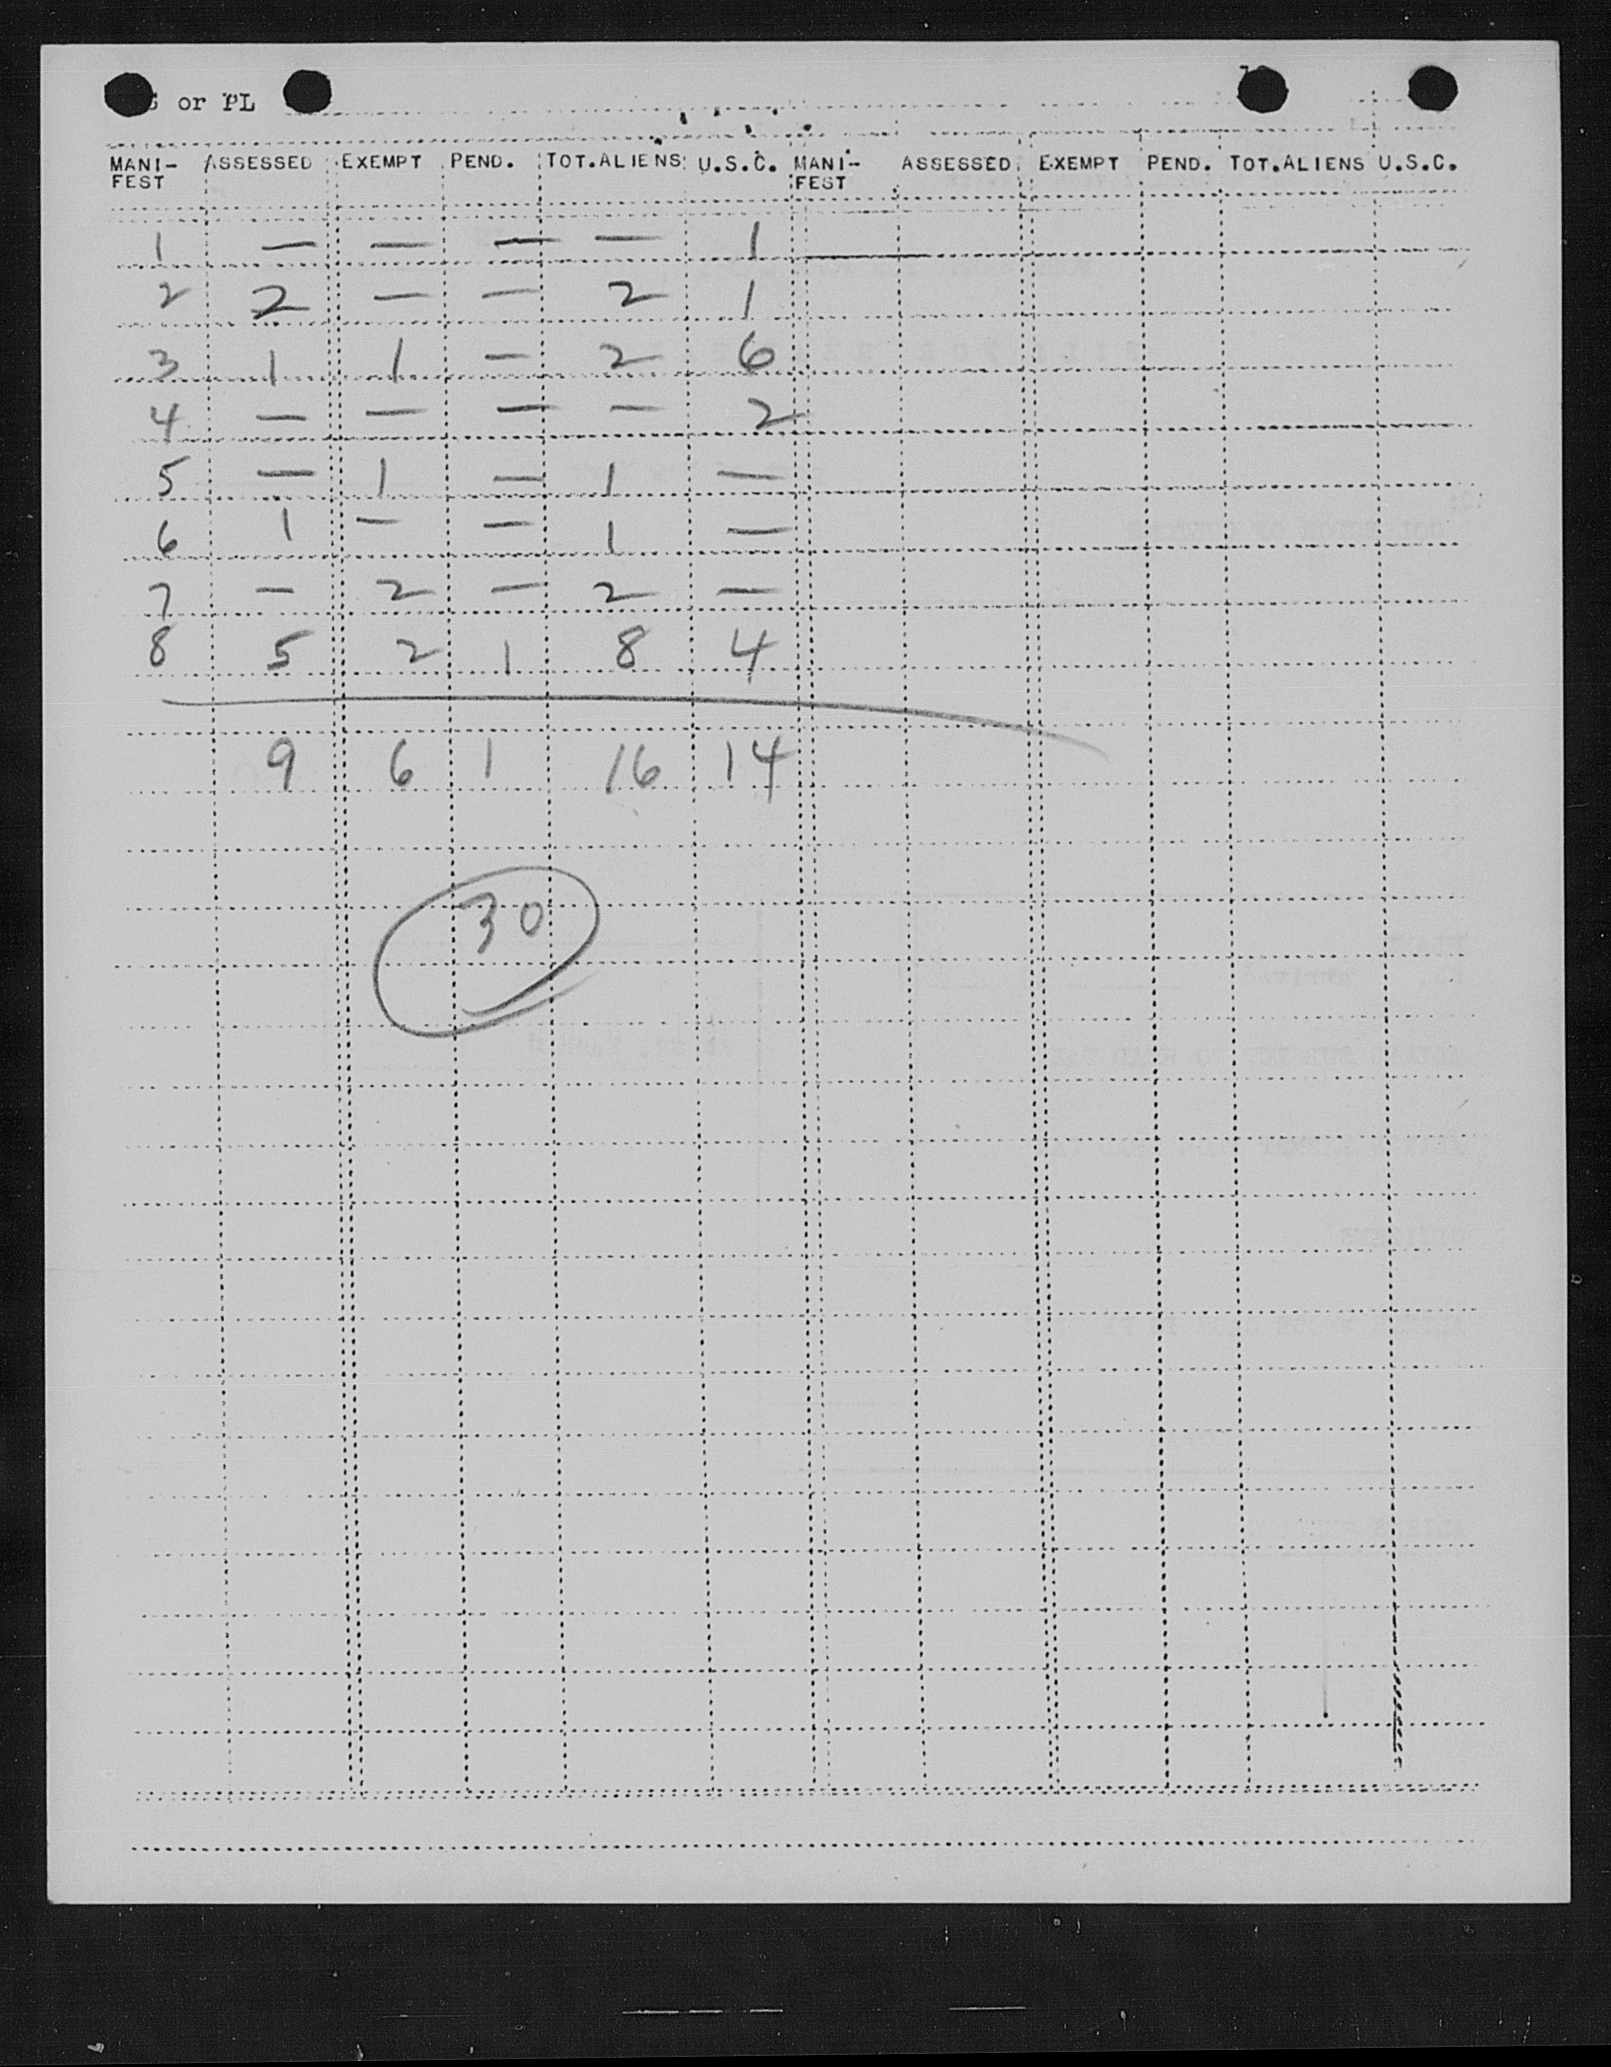 or PL
MANI- ASSESSED EXEMPT PEND. TOT.ALIENS U.S.C. MANI- ASSESSED EXEMPT PEND. TOT.ALIENS U.S.C.
FEST FEST
1 — — — — 1
2 2 — — 2 1
3 1 1 — 2 6
4 — — — — 2
5 — 1 — 1 —
6 1 — — 1 —
7 — 2 — 2 —
8 5 2 1 8 4
9 6 1 16 14
30